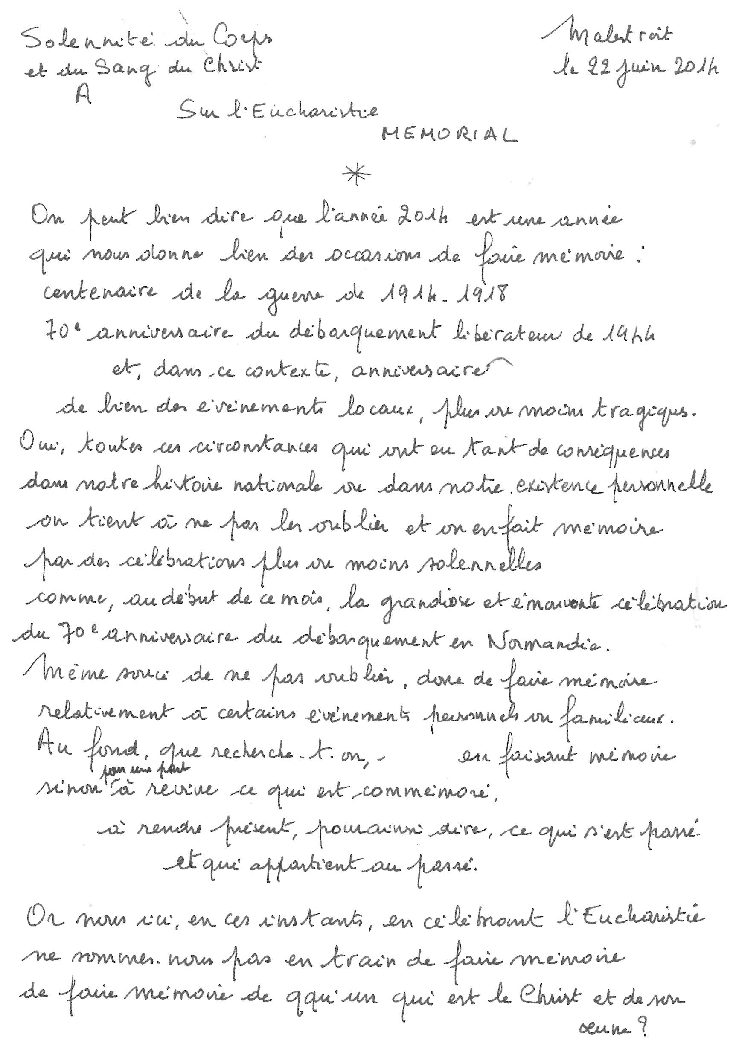 Solennité du Corps
et du Sang du Christ
A
Malestroit
le 22 juin 2014
Sur l'Eucharistie
MEMORIAL
*
On peut bien dire que l'année 2014 est une année
qui nous donne bien des occasions de faire mémoire :
centenaire de la guerre de 1914-1918
70e anniversaire du débarquement libérateur de 1944
et, dans ce contexte, anniversaire
de bien des événements locaux, plus ou moins tragiques.
Oui, toutes ces circonstances qui ont eu tant de conséquences
dans notre histoire nationale ou dans notre existence personnelle
on tient à ne pas les oublier et on en fait mémoire
par des célébrations plus ou moins solennelles
comme, au début de ce mois, la grandiose et émouvante célébration
du 70e anniversaire du débarquement en Normandie.
Même souci de ne pas oublier, donc de faire mémoire
relativement à certains événements personnels ou familiaux.
Au fond, que recherche-t-on, - en faisant mémoire
pour une part
sinon à revivre ce qui est commémoré,
à rendre présent, pour ainsi dire, ce qui s'est passé
et qui appartient au passé.
Or nous ici, en ces instants, en célébrant l'Eucharistie
ne sommes-nous pas en train de faire mémoire
de faire mémoire de qqu'un qui est le Christ et de son
œuvre ?